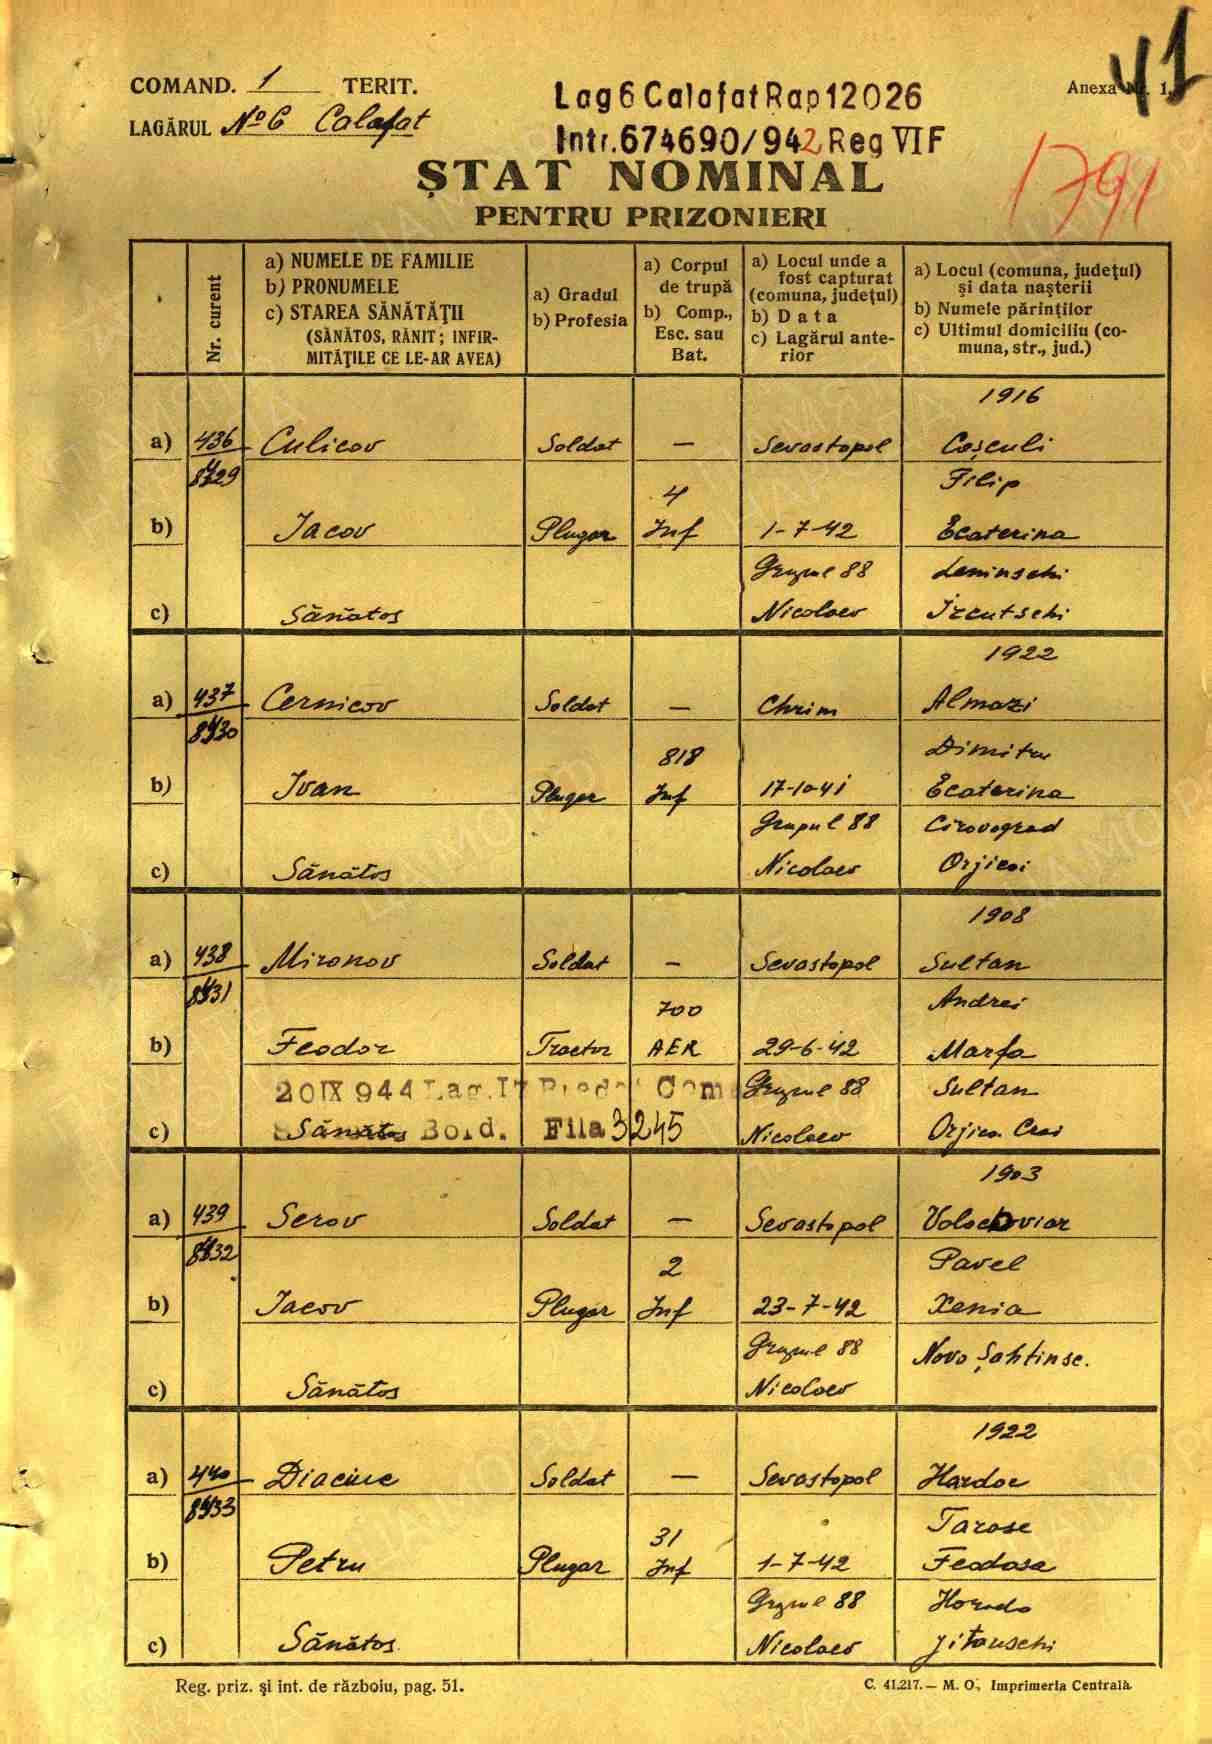 41
COMAND. 1 TERIT.
Anexa Nr. 1.
LAGĂRUL No 6 Calafat
Lag 6 Calafat Rap 12026
Intr. 674690/942 Reg VI F
1791
ȘTAT NOMINAL
PENTRU PRIZONIERI
Nr. curent
a) NUMELE DE FAMILIE
b) PRONUMELE
c) STAREA SĂNĂTĂȚII
(SĂNĂTOS, RĂNIT; INFIR-
MITĂȚILE CE LE-AR AVEA)
a) Gradul
b) Profesia
a) Corpul
de trupă
b) Comp.,
Esc. sau
Bat.
a) Locul unde a
fost capturat
(comuna, județul)
b) Data
c) Lagărul ante-
rior
a) Locul (comuna, județul)
și data nașterii
b) Numele părinților
c) Ultimul domiciliu (co-
muna, str., jud.)
1916
a) 436 Culicov Soldat — Sevastopol Coșculi
8429 4 Filip
b) Iacov Plugar Inf 1-7-42 Ecaterina
Grupul 88 Leninschi
c) Sănătos Nicolaev Ircutschi
1922
a) 437 Cernicov Soldat — Chrim Almazi
8430 818 Dimitru
b) Ivan Plugar Inf 17-10-41 Ecaterina
Grupul 88 Cirovograd
c) Sănătos Nicolaev
1908
a) 438 Mironov Soldat — Sevastopol Sultan
8431 700 Andrei
b) Feodor Tractor AER 29-6-42 Marfa
20 IX 944 Lag. 17 Grupul 88 Sultan
c) Sănătos Bold. Fila 3245 Nicolaev
1903
a) 439 Serov Soldat — Sevastopol
8432 2 Pavel
b) Iacov Plugar Inf 23-7-42 Xenia
Grupul 88 Novo Șahtinsc.
c) Sănătos Nicolaev
1922
a) 440 Diaciuc Soldat — Sevastopol
8433 31 Tarase
b) Petru Plugar Inf 1-7-42 Feodosa
Grupul 88
c) Sănătos Nicolaev
Reg. priz. și int. de războiu, pag. 51.
C. 41.217. — M. O., Imprimeria Centrală.